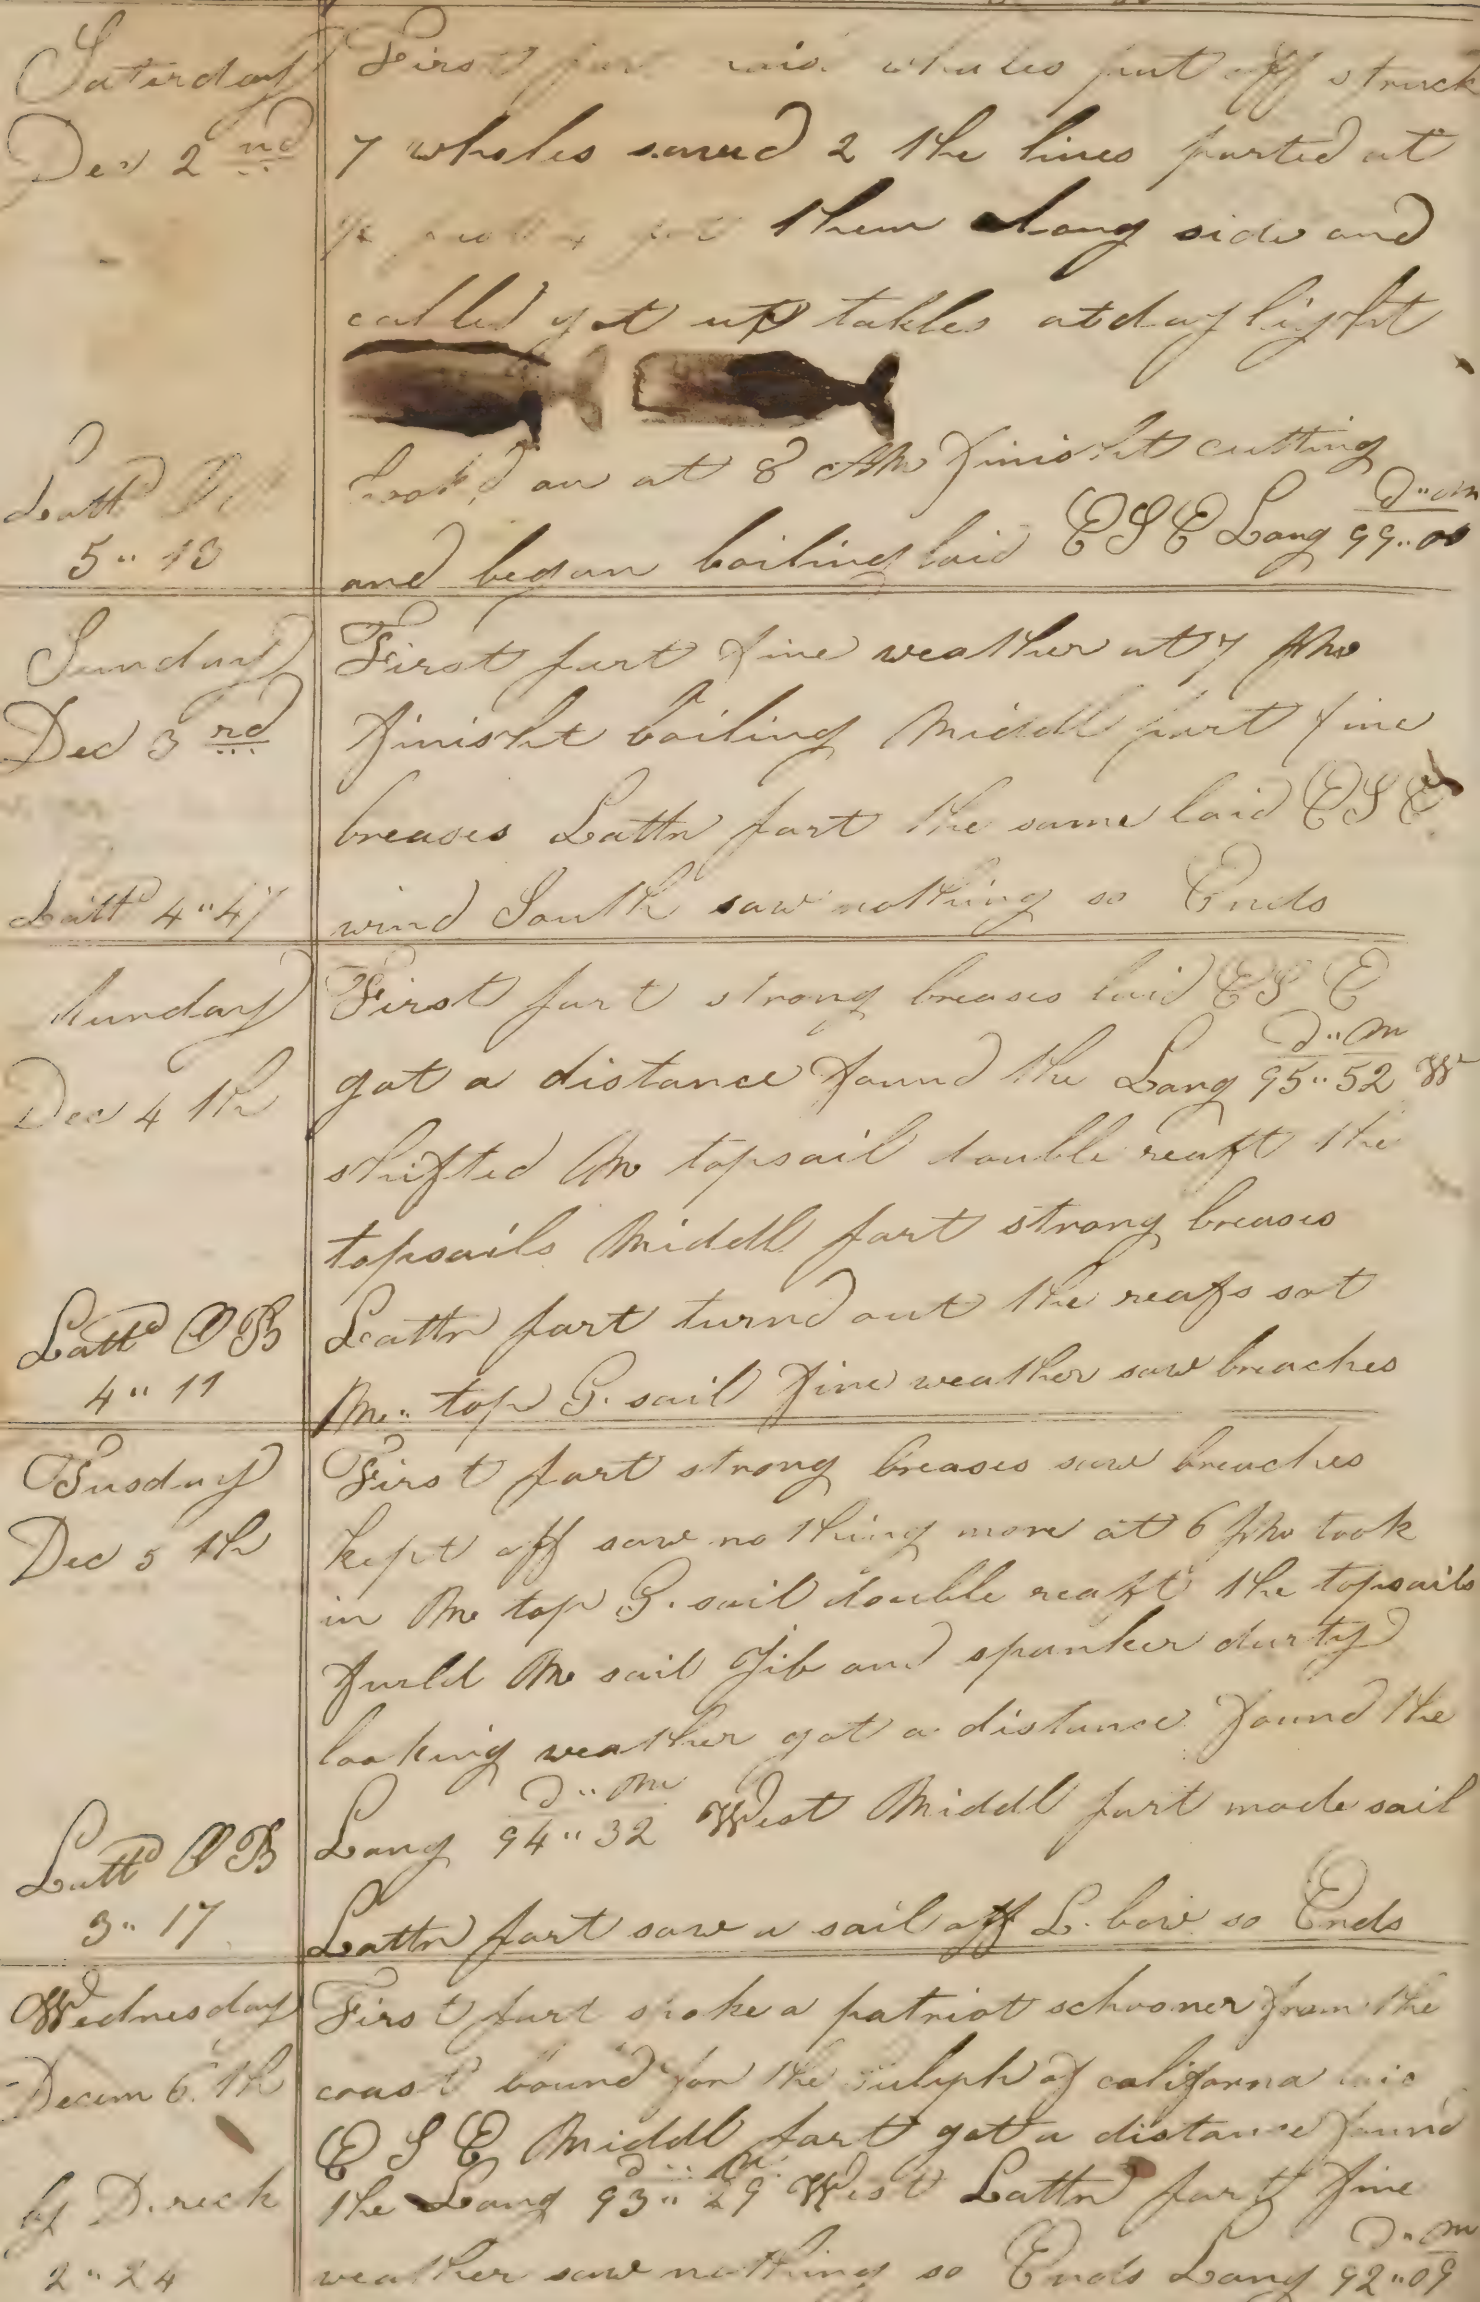 Saturday
Dec 2 nd
First whales put off struck
7 whales saved 2 the lines parted at
them along side and
called got up takles at day light
hook,d on at 8 AM finisht cutting
and began boiling laid ESE Long D"M 99"00
Lattd
5" 13
Sunday
Dec 3 rd
First part fine weather at 7 PM
finisht boiling Middl part fine
breases Lattr part the same laid ESE
wind South saw nothing so Ends
Lattd 4"47
Munday
Dec 4 th
First part strong breases laid ES E
got a distance found the Long D"M 95"52 W
shifted M topsail double reaft the
topsails Middl part strong breases
Lattr part turnd out the reafs sat
M" top G. sail fine weather saw breaches
Lattd OB
4" 11
Tusday
Dec 5 th
First part strong breases saw breaches
kept off saw nothing more at 6 PM took
in M top G. sail double reaft the topsails
furld M sail Jib and spanker durty
looking weather got a distance found the
Long D"M 94"32 West Middl part made sail
Lattr part saw a sail off L. bow so Ends
Lattd OB
3" 17
Wednesday
Decem 6 th
First part spoke a patriot schooner from the
coast bound for the gulph of californa laid
E S E Middl part got a distance found
the Long D"M 93"29 West Lattr part fine
weather saw nothing so Ends Long D"M 92"09
by D. reck
2"24